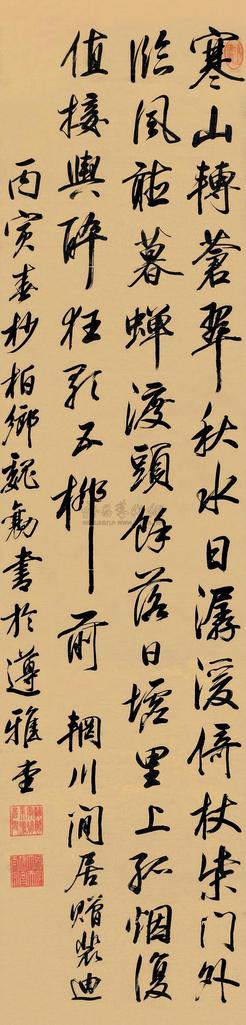 寒山轉蒼翠秋水日潺湲倚杖柴门外
临风聴暮蝉渡頭餘落日墟里上孤烟復
值接輿醉狂歌五柳前 輞川闲居赠裴迪
丙寅春杪柏鄉魏勷書於遵雅堂